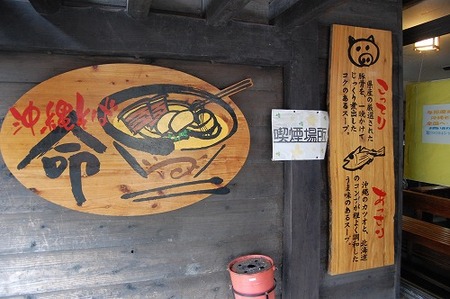 沖縄そば
命
喫煙場所
こってり
県産の厳選された
豚骨を、一晩かけて
じっくり煮出した
コクのあるスープ。
あっさり
沖縄のカツオと、北海道
のコンブが程よく調和した
うま味のあるスープ。